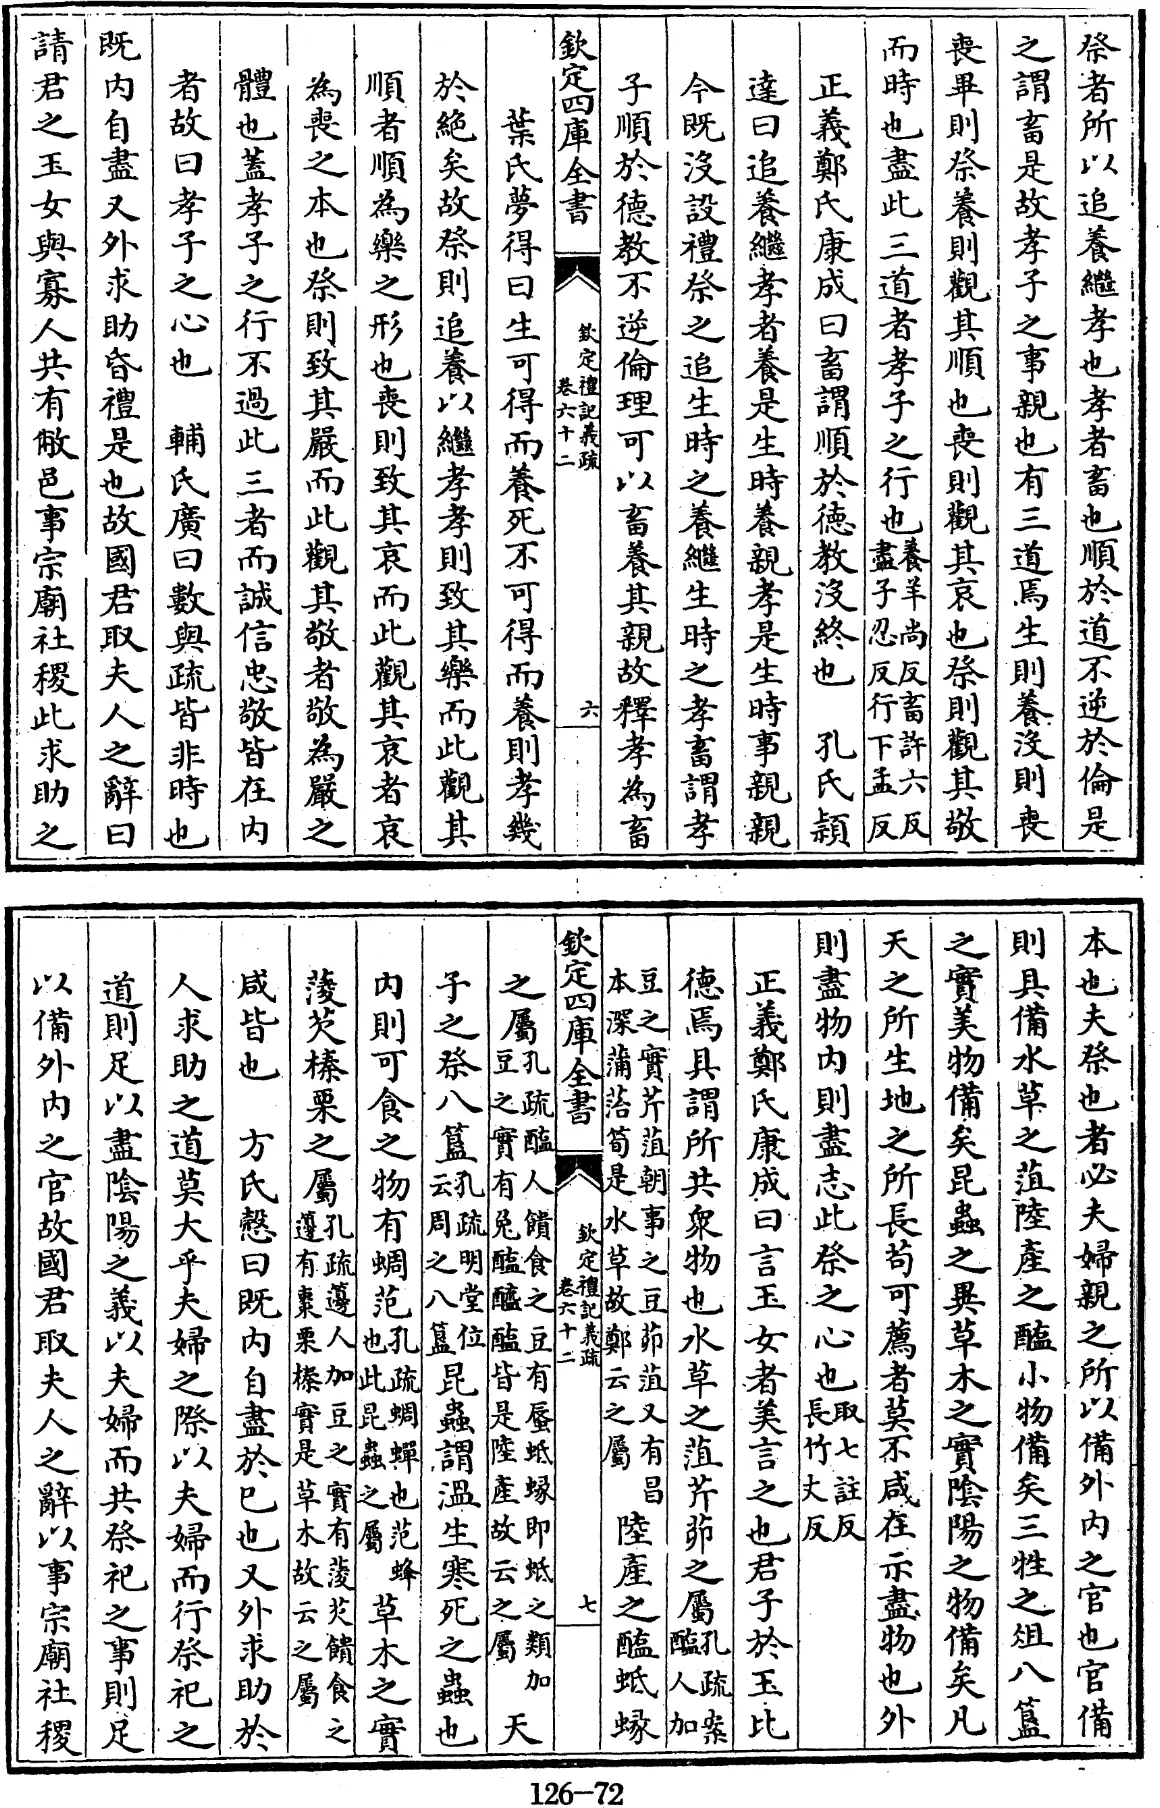 祭者所以追養繼孝也孝者畜也順於道不逆於倫是
之謂畜是故孝子之事親也有三道焉生則養没則喪
喪畢則祭養則觀其順也喪則觀其哀也祭則觀其敬
而時也盡此三道者孝子之行也養羊尚反畜許六反
盡子忍反行下孟反
正義鄭氏康成曰畜謂順於徳教没終也　孔氏穎
達曰追養繼孝者養是生時養親孝是生時事親親
今既沒設禮祭之追生時之養繼生時之孝畜謂孝
子順於德教不逆倫理可以畜養其親故釋孝為畜
欽定四庫全書　欽定禮記義疏
卷六十二　六
葉氏夢得曰生可得而養死不可得而養則孝幾
於絶矣故祭則追養以繼孝孝則致其樂而此觀其
順者順為樂之形也喪則致其哀而此觀其哀者哀
為喪之本也祭則致其嚴而此觀其敬者敬為嚴之
體也蓋孝子之行不過此三者而誠信忠敬皆在内
者故曰孝子之心也　輔氏廣曰數與疏皆非時也
既内自盡又外求助昏禮是也故國君取夫人之辭曰
請君之玉女與寡人共有敝邑事宗廟社稷此求助之
本也夫祭也者必夫婦親之所以備外内之官也官備
則具備水草之菹陸產之醢小物備矣三牲之俎八簋
之實美物備矣昆蟲之異草木之實陰陽之物備矣凡
天之所生地之所長苟可薦者莫不咸在示盡物也外
則盡物内則盡志此祭之心也取七註反
長竹丈反
正義鄭氏康成曰言玉女者美言之也君子於玉比
德焉具謂所共衆物也水草之菹芹茆之屬孔疏案
醢人加
豆之實芹菹朝事之豆茆菹又有昌
本深蒲箈筍是水草故鄭云之屬　陸產之醢蚳蝝
之屬孔疏醢人饋食之豆有蜃蚳蝝即蚳之類加
豆之實有兔醢醓醢皆是陸產故云之屬　天
子之祭八簋孔疏明堂位
云周之八簋　昆蟲謂温生寒死之蟲也
内則可食之物有蜩范孔疏蜩蟬也范蜂
也此昆蟲之屬　草木之實
蔆芡榛栗之屬孔疏籩人加豆之實有蔆芡饋食之
籩有棗栗榛實是草木故云之屬
咸皆也　方氏慤曰既内自盡於已也又外求助於
人求助之道莫大乎夫婦之際以夫婦而行祭祀之
道則足以盡陰陽之義以夫婦而共祭祀之事則足
以備外内之官故國君取夫人之辭以事宗廟社稷
欽定四庫全書　欽定禮記義疏
卷六十二　七
126-72